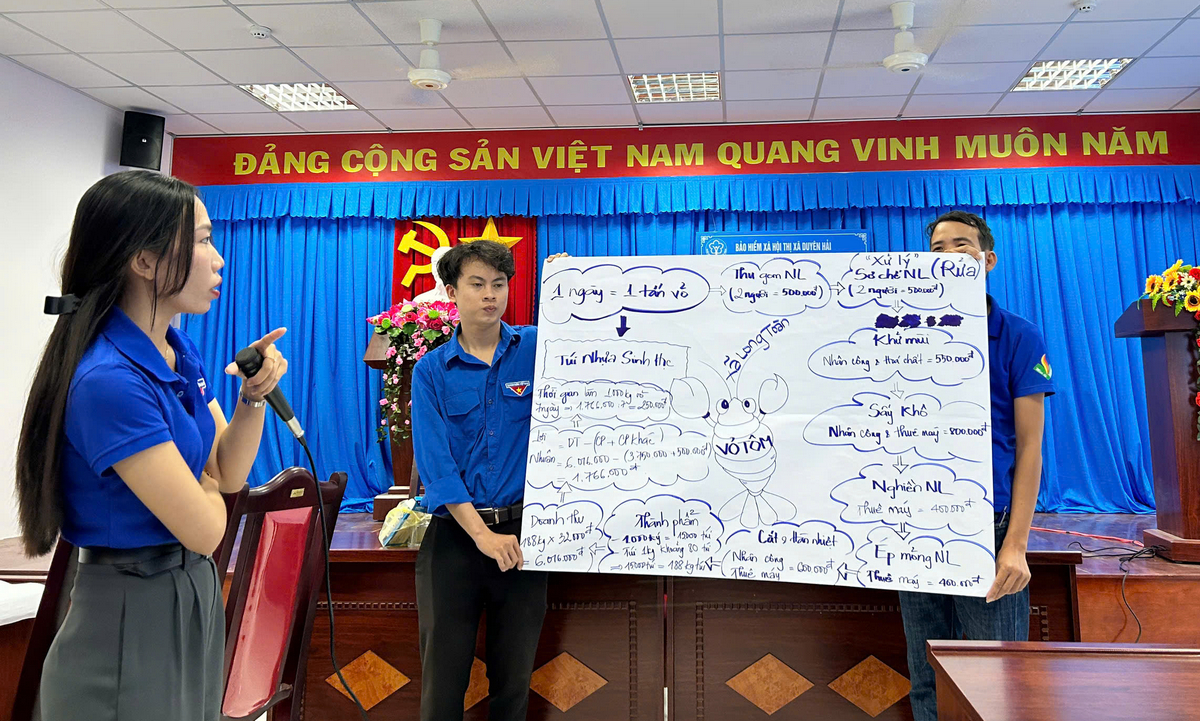 ĐẢNG CỘNG SẢN VIỆT NAM QUANG VINH MUÔN NĂM
BẢO HIỂM XÃ HỘI THỊ XÃ DUYÊN HẢI
1 ngày = 1 tấn vỏ
Thu gom NL
(2 người = 500.000đ)
"Xử lý"
Sơ chế NL (Rửa)
(2 người = 500.000đ)
Khử mùi
Nhân công & hoá chất = 550.000đ
Sấy khô
Nhân công & thuê máy = 800.000đ
Nghiền NL
Thuê máy = 450.000đ
Ép màng NL
Thuê máy = 400.000đ
Cắt, Hàn nhiệt
Nhân công
Thuê máy
Thành phẩm
1000kg = 15000 túi
Túi 1kg khoảng 80 túi
⇒ 15000 túi = 188 kg túi
Doanh thu
188kg x 32.000đ
= 6.016.000đ
Lợi nhuận
= DT - (CP + CP khác)
= 6.016.000 - (3.750.000 + 500.000đ)
= 1.766.000đ
Thời gian làm 1000kg vỏ
7 ngày = 1.766.000 : 7 = 250.000đ
Túi Nhựa Sinh học
Long Toàn
VỎ TÔM